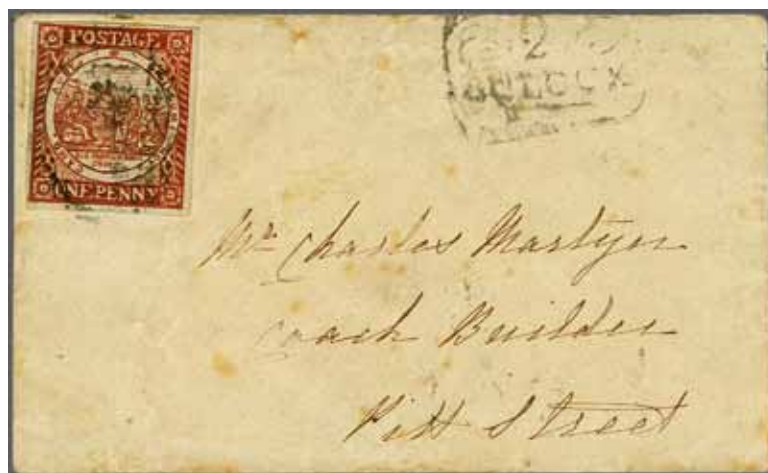 POSTAGE
ONE PENNY
2
O'CLOCK
Mr. Charles Martyn
Coach Builder
Pitt Street